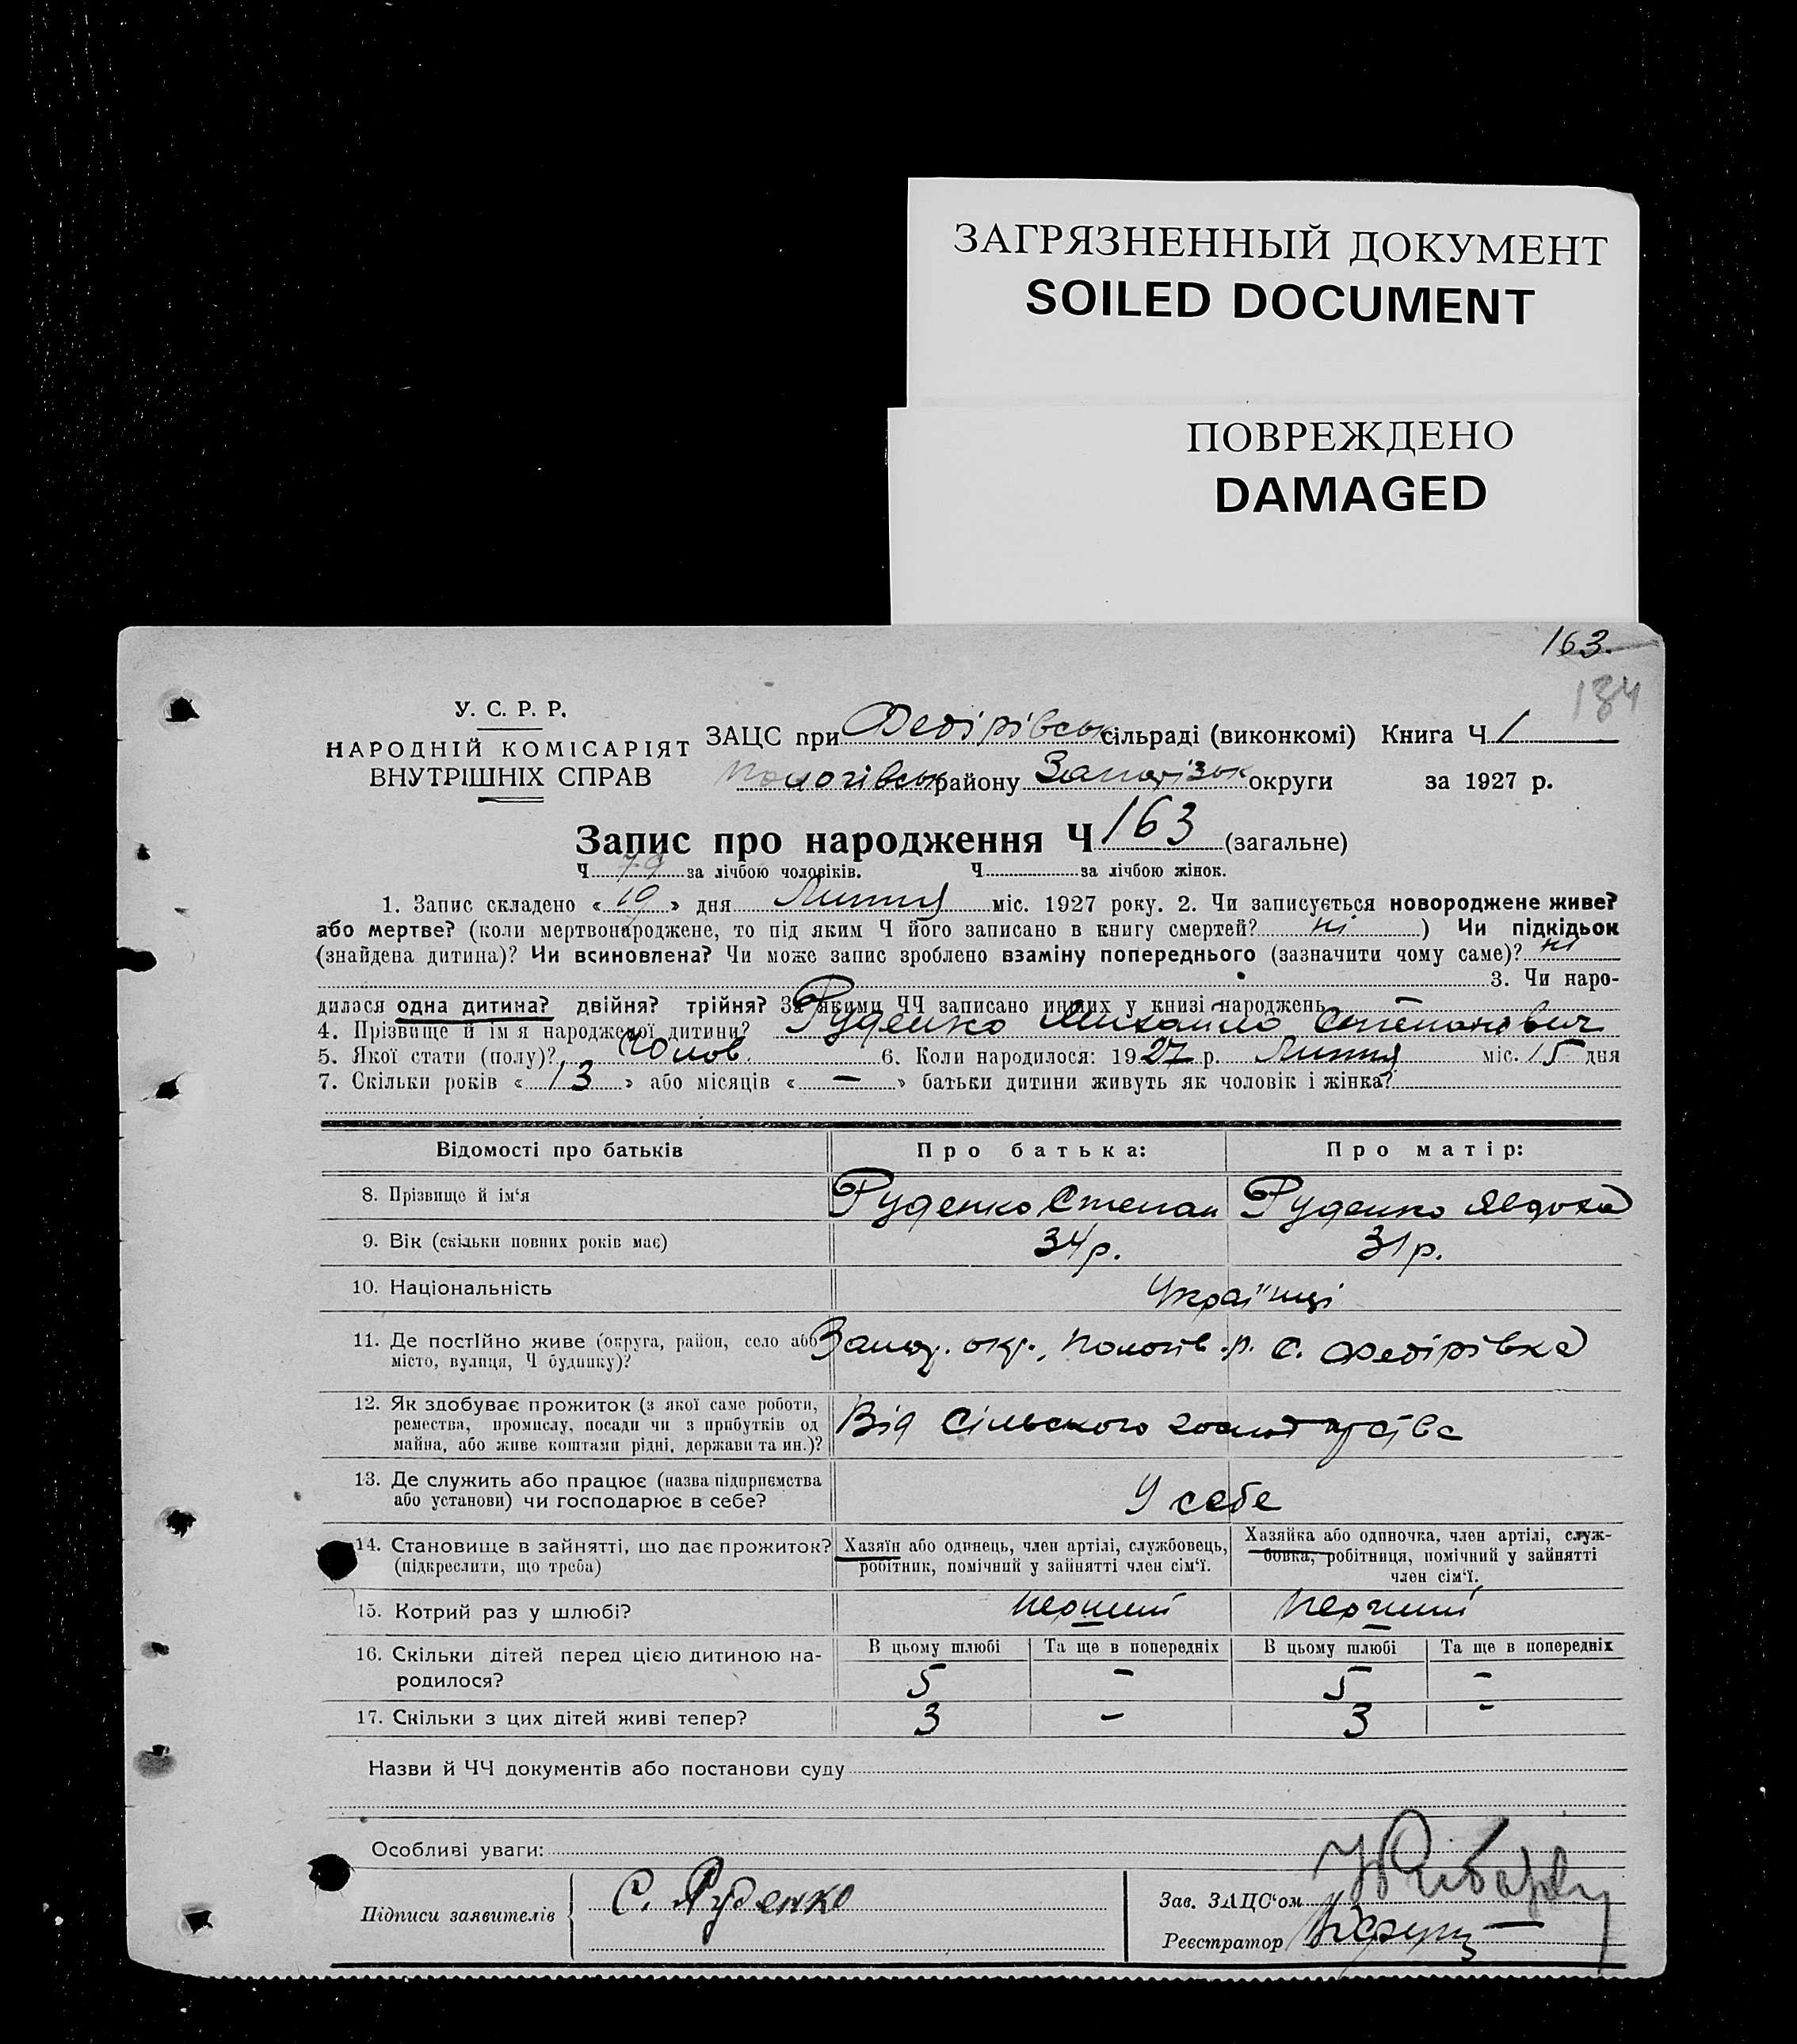 ЗАГРЯЗНЕННЫЙ ДОКУМЕНТ
SOILED DOCUMENT
ПОВРЕЖДЕНО
DAMAGED
163.
134
У. С. Р. Р.
НАРОДНІЙ КОМІСАРІЯТ
ВНУТРІШНІХ СПРАВ
ЗАЦС при Федірівськ сільраді (виконкомі) Книга Ч 1
Пологівськ району Запорізьк округи за 1927 р.
Запис про народження Ч 163 (загальне)
Ч 79 за лічбою чоловіків. Ч за лічбою жінок.
1. Запис складено « 19 » дня Липня міс. 1927 року. 2. Чи записується новороджене живе?
або мертве? (коли мертвонароджене, то під яким Ч його записано в книгу смертей? ні ) Чи підкідьок
(знайдена дитина)? Чи всиновлена? Чи може запис зроблено взаміну попереднього (зазначити чому саме)? ні
3. Чи наро-
дилася одна дитина? двійня? трійня? За якими ЧЧ записано инших у книзі народжень
4. Прізвище й ім'я народженої дитини? Руденко Михайло Степанович
5. Якої стати (полу)? Чолов. 6. Коли народилося: 1927 р. Липня міс. 15 дня
7. Скільки років « 13 » або місяців « — » батьки дитини живуть як чоловік і жінка?
Відомості про батьків Про батька: Про матір:
8. Прізвище й ім'я Руденко Степан Руденко Явдоха
9. Вік (скільки повних років має) 34 р. 31 р.
10. Національність Україньці
11. Де постійно живе (округа, район, село або Запор. окр., Пологів. р. С. Федірівка
місто, вулиця, Ч будинку)?
12. Як здобуває прожиток (з якої саме роботи,
ремества, промислу, посади чи з прибутків од Від сільського господарства
майна, або живе коштами рідні, держави та ин.)?
13. Де служить або працює (назва підприємства
або установи) чи господарює в себе? У себе
14. Становище в зайнятті, що дає прожиток? Хазяїн або одинець, член артілі, службовець, Хазяйка або одиночка, член артілі, служ-
(підкреслити, що треба) робітник, помічний у зайнятті член сім'ї. бовка, робітниця, помічний у зайнятті
член сім'ї.
15. Котрий раз у шлюбі? Перший Перший
16. Скільки дітей перед цією дитиною на- В цьому шлюбі Та ще в попередніх В цьому шлюбі Та ще в попередніх
родилося? 5 – 5 –
17. Скільки з цих дітей живі тепер? 3 – 3 –
Назви й ЧЧ документів або постанови суду
Особливі уваги:
Підписи заявителів С. Руденко
Зав. ЗАЦС'ом
Реєстратор